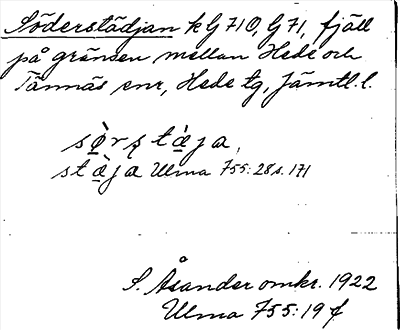 Söderstädjan k G 71 O, G 71, fjäll
på gränsen mellan Hede och
Tännäs snr, Hede tg, Jämtl. l.
sø̀rʂtæ̀ja,
stæ̀ja Ulma 755:28 s. 171
S. Åsander omkr. 1922
Ulma 755:19